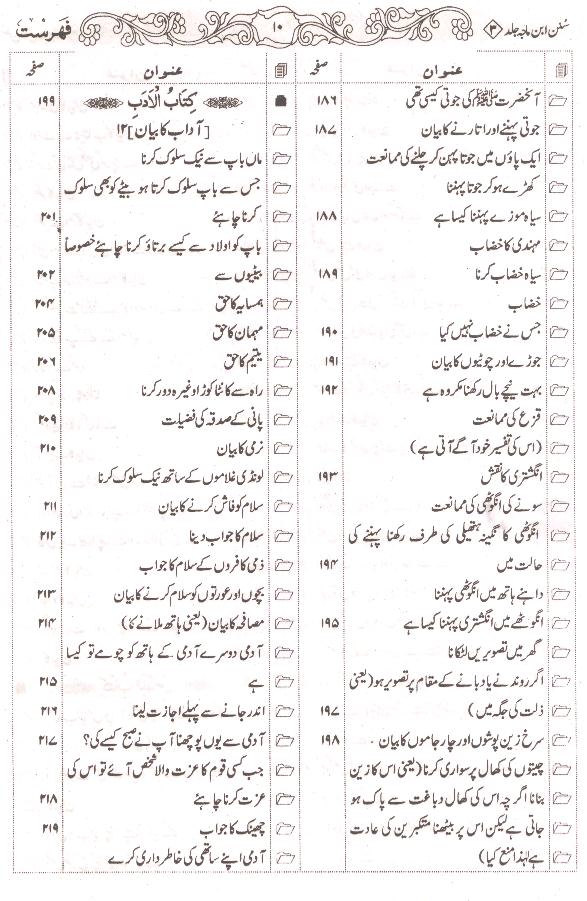 سُنن ابن ماجہ جلد ۳
۱۰
فہرست
عنوان صفحہ
آنحضرت ﷺ کی جوتی کیسی تھی ۱۸۶
جوتی پہننے اور اتارنے کا بیان ۱۸۷
ایک پاؤں میں جوتا پہن کر چلنے کی ممانعت
کھڑے ہو کر جوتا پہننا
سیاہ موزے پہننا کیسا ہے ۱۸۸
مہندی کا خضاب
سیاہ خضاب کرنا ۱۸۹
خضاب
جس نے خضاب نہیں کیا ۱۹۰
جوڑے اور چوٹیوں کا بیان ۱۹۱
بہت نیچے بال رکھنا مکروہ ہے ۱۹۲
قزع کی ممانعت
(اس کی تفسیر خود آگے آتی ہے)
انگشتری کا نقش ۱۹۳
سونے کی انگوٹھی کی ممانعت
انگوٹھی کا نگینہ ہتھیلی کی طرف رکھنا پہننے کی
حالت میں ۱۹۴
داہنے ہاتھ میں انگوٹھی پہننا
انگوٹھے میں انگشتری پہننا کیسا ہے ۱۹۵
گھر میں تصویریں لٹکانا
اگر روندنے یا دبانے کے مقام پر تصویر ہو (یعنی
ذلت کی جگہ میں) ۱۹۷
سرخ زین پوشوں اور چار جاموں کا بیان ۱۹۸
چیتوں کی کھال پر سواری کرنا (یعنی اس کا زین
بنانا اگرچہ اس کی کھال دباغت سے پاک ہو
جاتی ہے لیکن اس پر بیٹھنا متکبرین کی عادت
ہے لہٰذا منع کیا)
عنوان صفحہ
کِتَابُ الْاَدَبِ ۱۹۹
[آداب کا بیان] ۱۲
ماں باپ سے نیک سلوک کرنا
جس سے باپ سلوک کرتا ہو بیٹے کو بھی سلوک
کرنا چاہئے ۲۰۱
باپ کو اولاد سے کیسے برتاؤ کرنا چاہئے خصوصاً
بیٹیوں سے ۲۰۲
ہمسایہ کا حق ۲۰۴
مہمان کا حق ۲۰۵
یتیم کا حق ۲۰۶
راہ سے کانٹا کوڑا وغیرہ دور کرنا ۲۰۸
پانی کے صدقہ کی فضیلت ۲۰۹
نرمی کا بیان ۲۱۰
لونڈی غلاموں کے ساتھ نیک سلوک کرنا
سلام کو فاش کرنے کا بیان ۲۱۱
سلام کا جواب دینا ۲۱۲
ذمی کافروں کے سلام کا جواب
بچوں اور عورتوں کو سلام کرنے کا بیان ۲۱۳
مصافحہ کا بیان (یعنی ہاتھ ملانے کا) ۲۱۴
آدمی دوسرے آدمی کے ہاتھ کو چومے تو کیسا
ہے ۲۱۵
اندر جانے سے پہلے اجازت لینا ۲۱۶
آدمی سے یوں پوچھنا آپ نے صبح کیسے کی؟ ۲۱۷
جب کسی قوم کا عزت والا شخص آئے تو اس کی
عزت کرنا چاہئے ۲۱۸
چھینک کا جواب ۲۱۹
آدمی اپنے ساتھی کی خاطر داری کرے